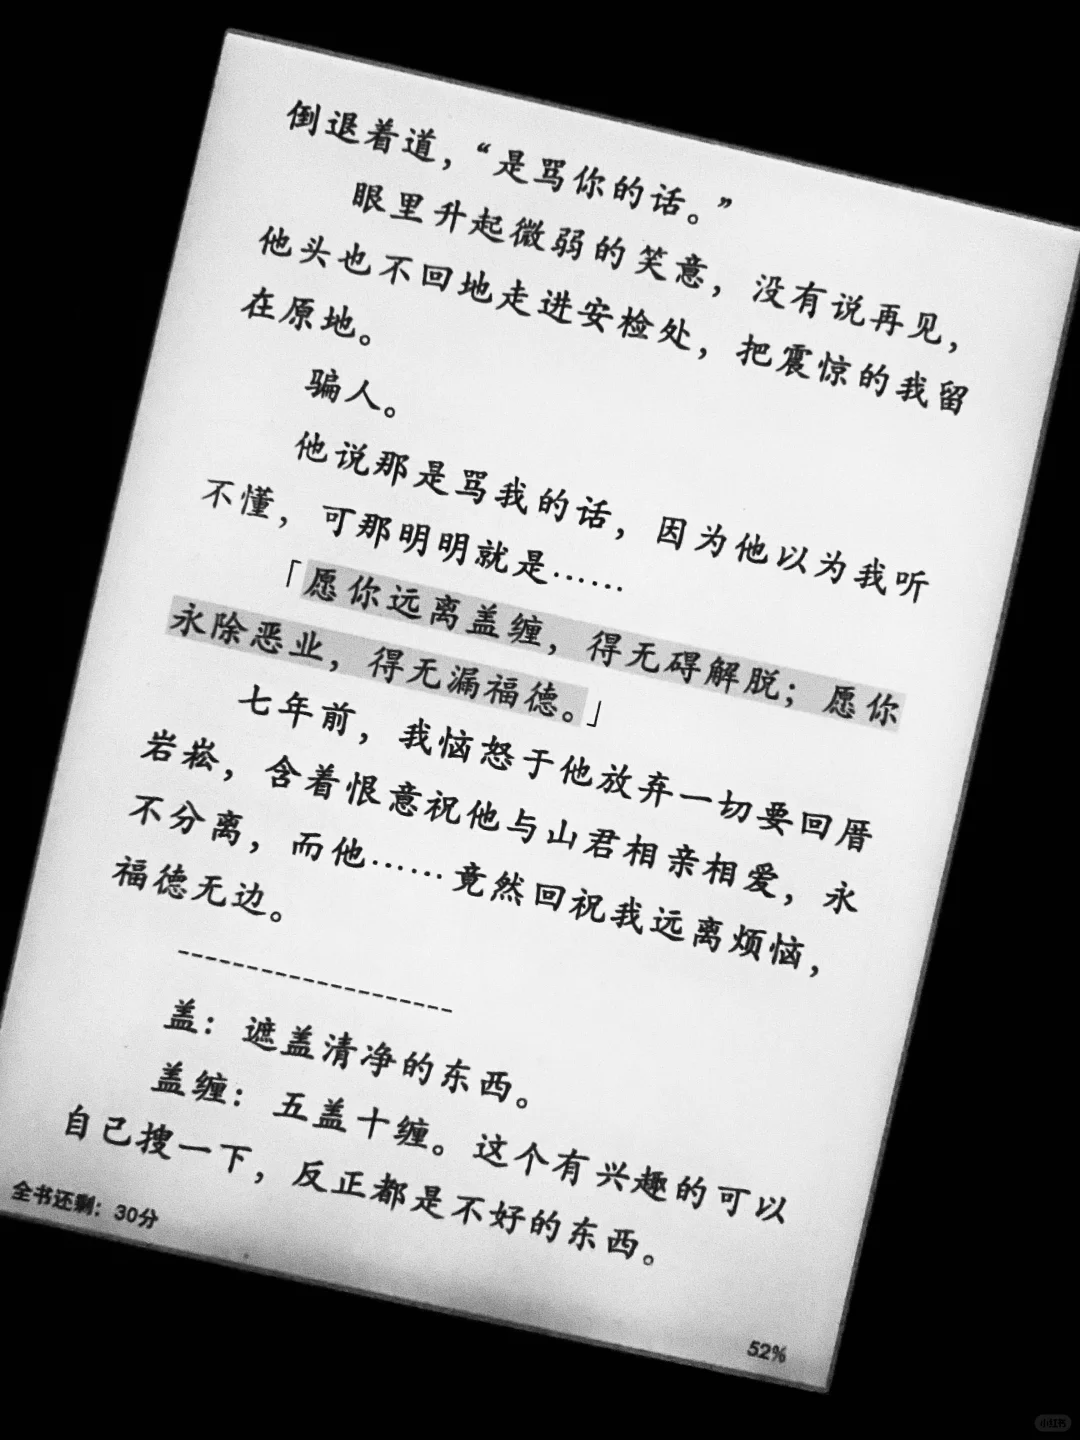 倒退着道，“是骂你的话。”
眼里升起微弱的笑意，没有说再见，
他头也不回地走进安检处，把震惊的我留
在原地。
骗人。
他说那是骂我的话，因为他以为我听
不懂，可那明明就是……
「愿你远离盖缠，得无碍解脱；愿你
永除恶业，得无漏福德。」
七年前，我恼怒于他放弃一切要回厝
岩崧，含着恨意祝他与山君相亲相爱，永
不分离，而他……竟然回祝我远离烦恼，
福德无边。
--------------------
盖：遮盖清净的东西。
盖缠：五盖十缠。这个有兴趣的可以
自己搜一下，反正都是不好的东西。
全书还剩：30分
52%
小红书